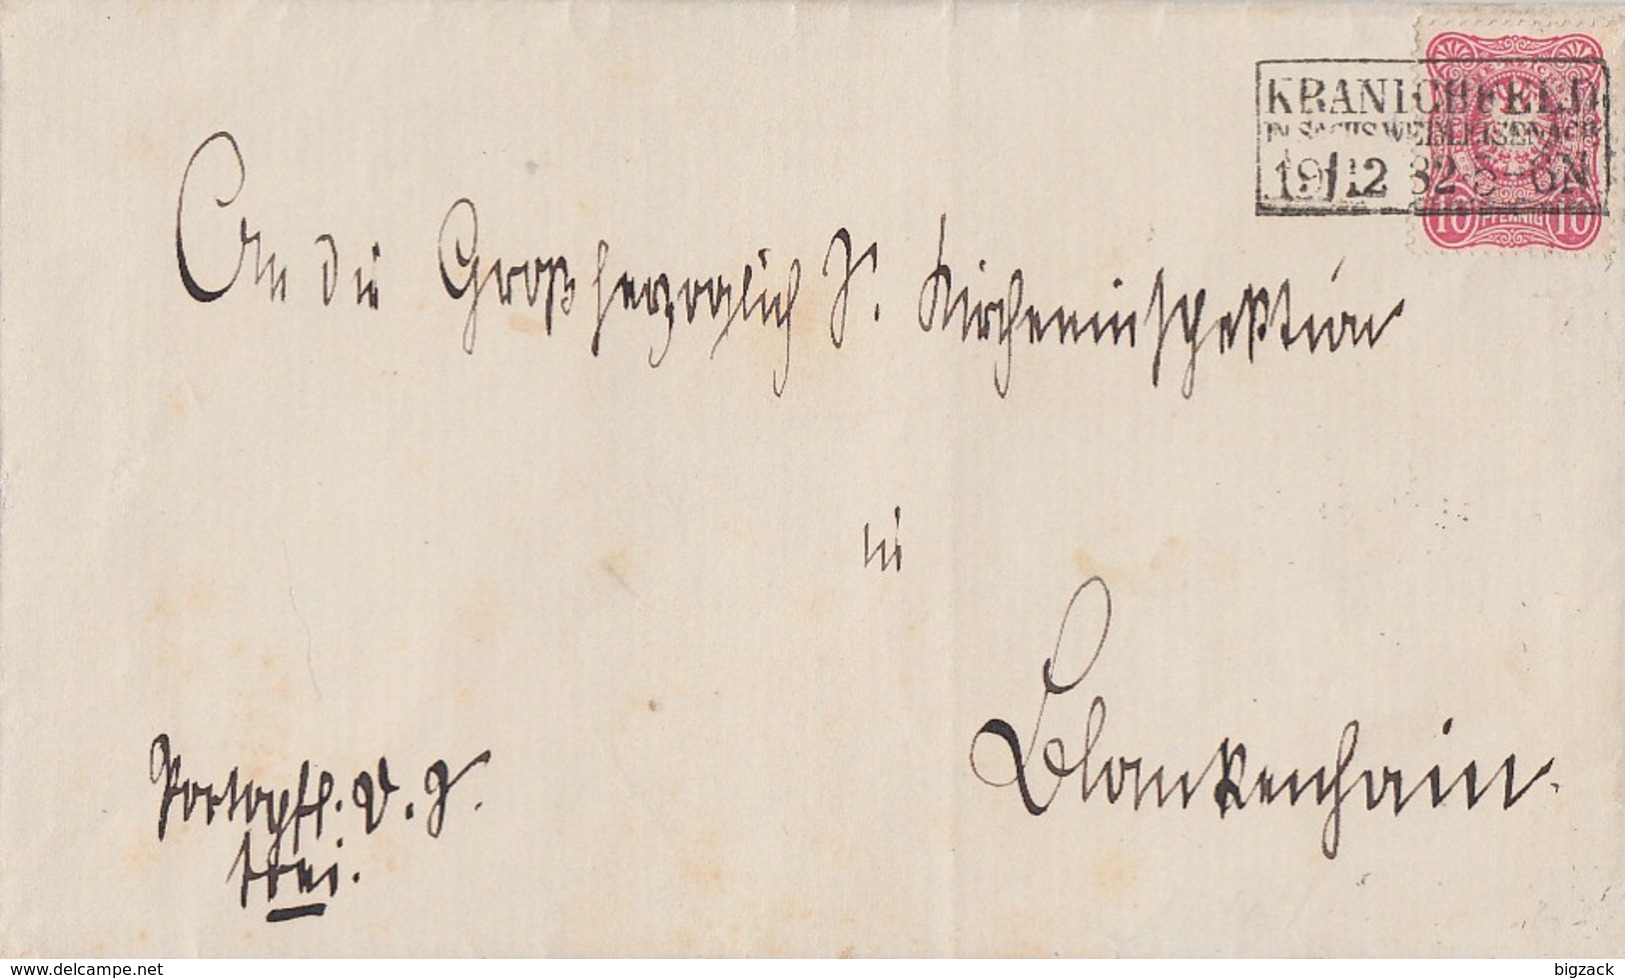 KRANICHFELD
IN SACHS.WEIM.EISENACH
19/12 82 5-6N
10 PFENNIG 10
An die Großherzoglich S. Kircheninspektion
in
Blankenhain.
Portopfl. D. S.
frei.
delcampe.net
bigzack